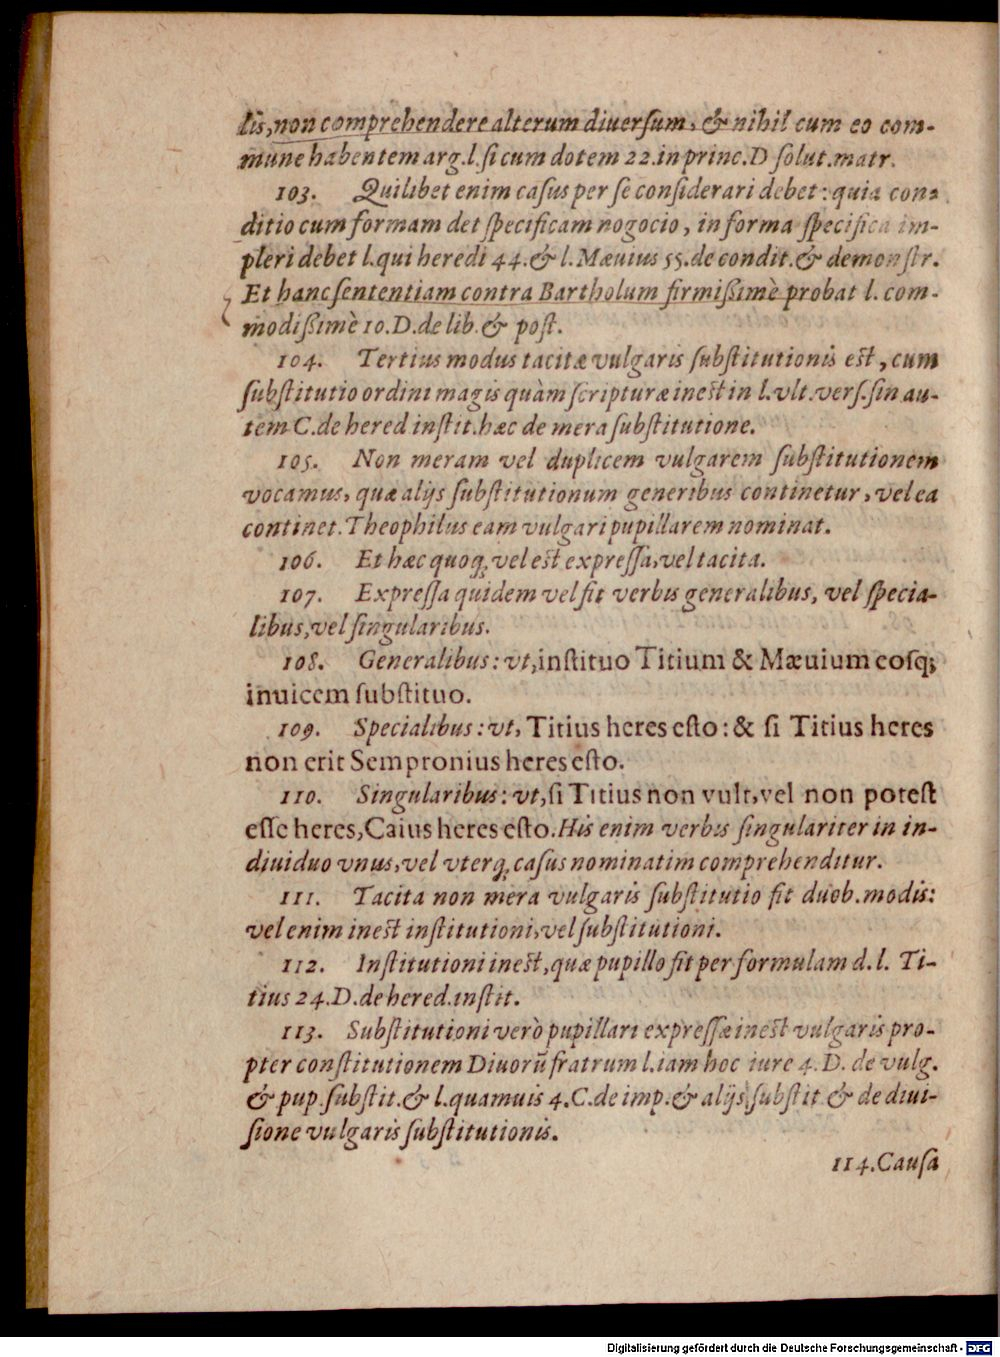 lis, non comprehendere alterum diuersum, & nihil cum eo com-
mune habentem arg. l. si cum dotem 22. in princ. D solut. matr.
103. Quilibet enim casus per se considerari debet: quia con-
ditio cum formam det specificam nogocio, in forma specifica im-
pleri debet l. qui heredi 44. & l. Mæuius 55. de condit. & demonstr.
Et hanc sententiam contra Bartholum firmißimè probat l. com-
modißimè 10. D. de lib. & post.
104. Tertius modus tacitæ vulgaris substitutionis est, cum
substitutio ordini magis quàm scripturæ inest in l. vlt. vers. sin au-
tem C. de hered instit. hæc de mera substitutione.
105. Non meram vel duplicem vulgarem substitutionem
vocamus, quæ alijs substitutionum generibus continetur, vel ea
continet. Theophilus eam vulgari pupillarem nominat.
106. Et hæc quoq; vel est expressa, vel tacita.
107. Expressa quidem vel fit verbis generalibus, vel specia-
libus, vel singularibus.
108. Generalibus: vt, instituo Titium & Mæuium eosq;
inuicem substituo.
109. Specialibus: vt, Titius heres esto: & si Titius heres
non erit Sempronius heres esto.
110. Singularibus: vt, si Titius non vult, vel non potest
esse heres, Caius heres esto. His enim verbis singulariter in in-
diuiduo vnus, vel vterq; casus nominatim comprehenditur.
111. Tacita non mera vulgaris substitutio fit duob. modis:
vel enim inest institutioni, vel substitutioni.
112. Institutioni inest, quæ pupillo fit per formulam d. l. Ti-
tius 24. D. de hered. instit.
113. Substitutioni verò pupillari expressæ inest vulgaris pro-
pter constitutionem Diuorũ fratrum l. iam hoc iure 4. D. de vulg.
& pup. substit. & l. quamuis 4. C. de imp. & alijs substit & de diui-
sione vulgaris substitutionis.
114. Causa
Digitalisierung gefördert durch die Deutsche Forschungsgemeinschaft - DFG